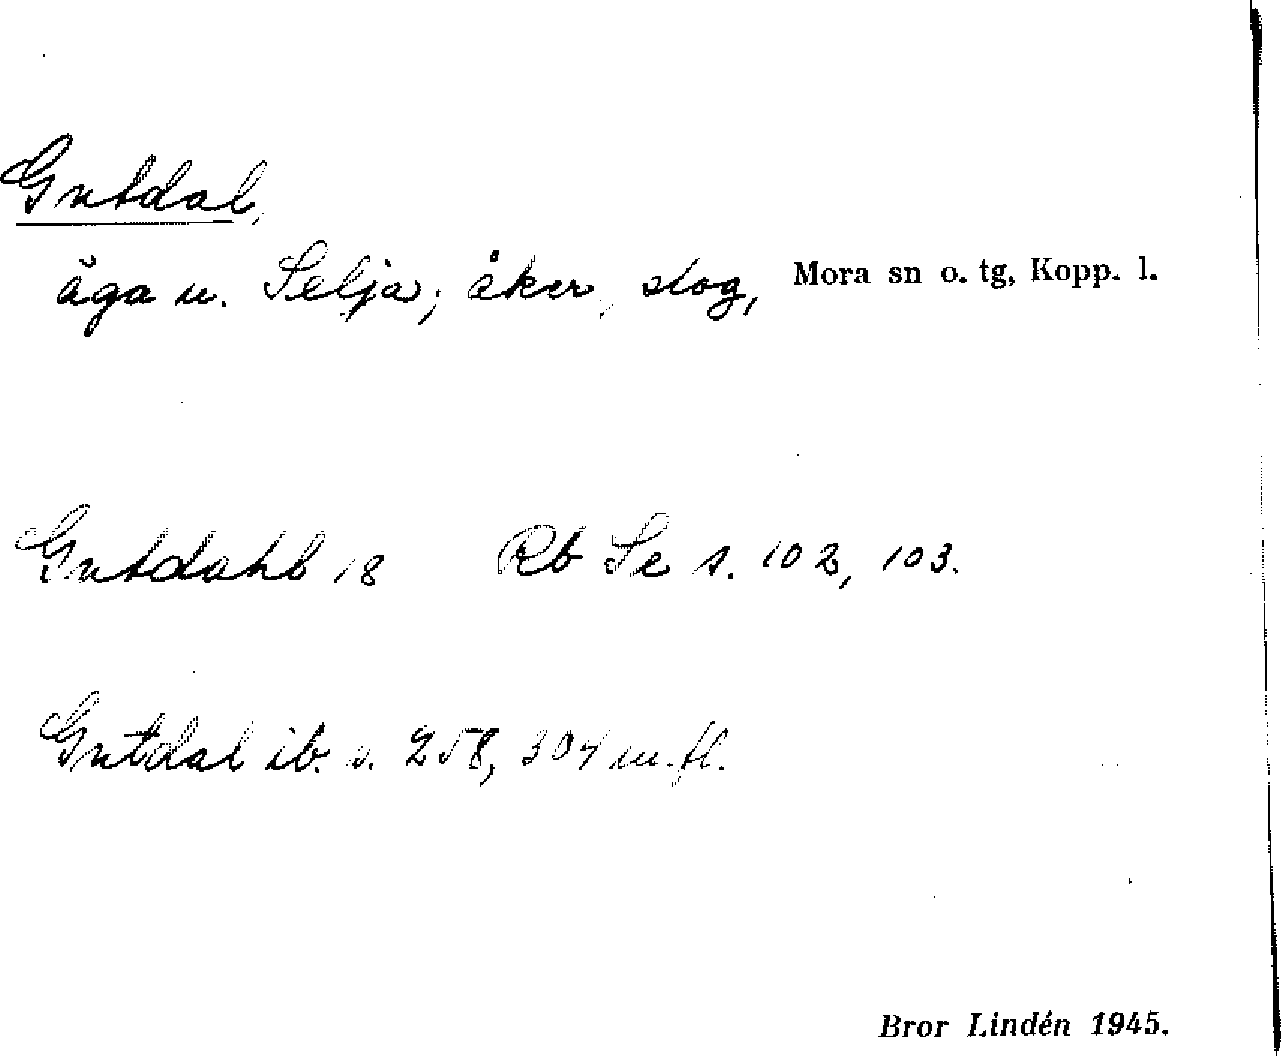 Gutdal,
äga u. Selja; åker, slog, Mora sn o. tg, Kopp. l.
Gutdahl 18 Rb Se s. 102, 103.
Gutdal ib. s. 258, 304 m. fl.
Bror Lindén 1945.